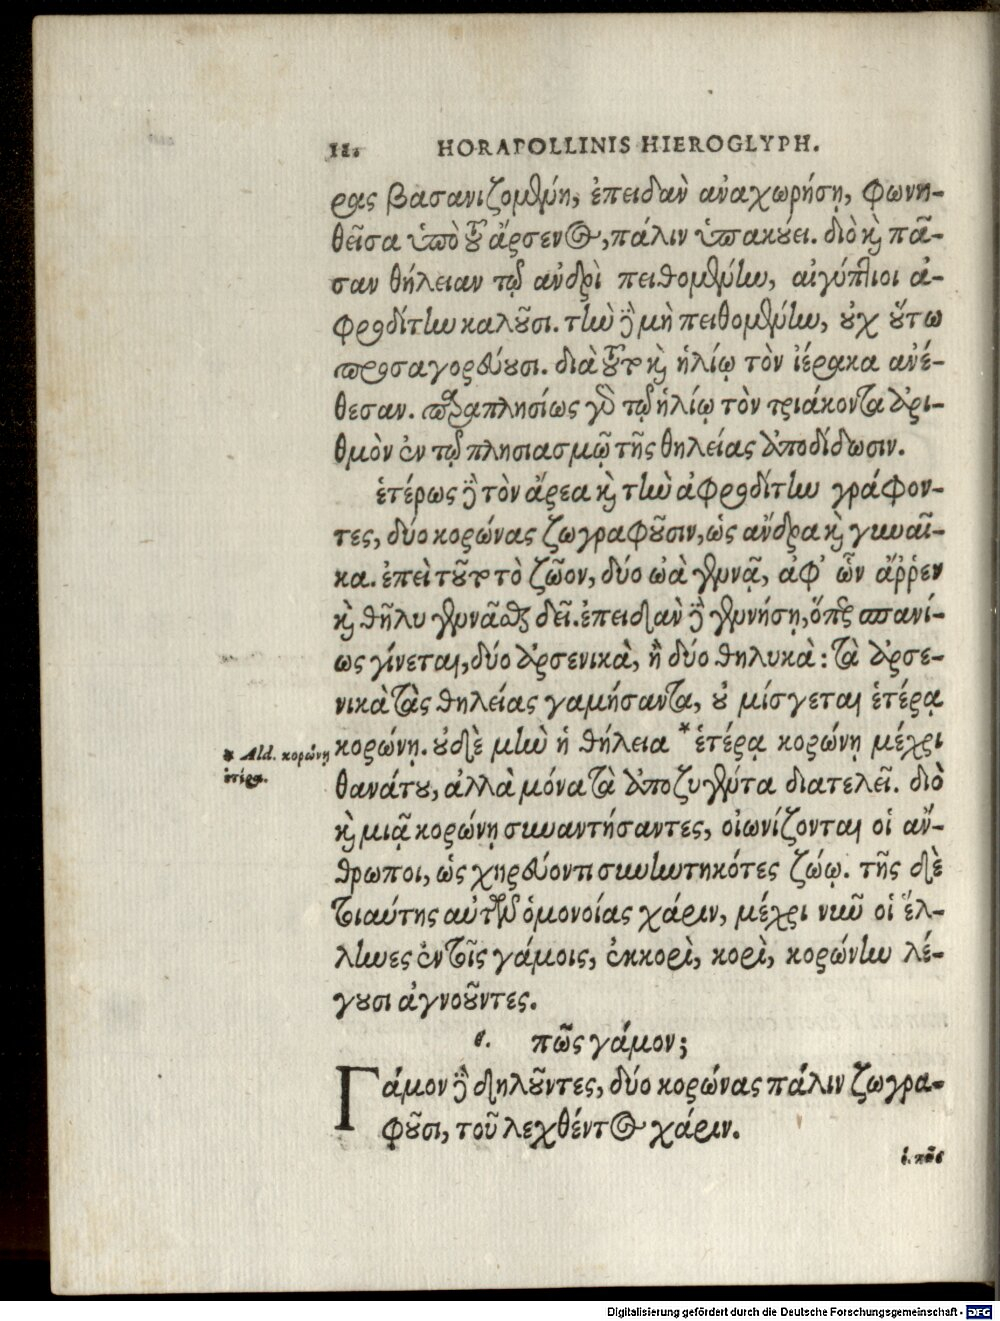 12. HORAPOLLINIS HIEROGLYPH.
ρας βασανιζομένη, ἐπειδὰν ἀναχωρήσῃ, φωνη-
θεῖσα ὑπὸ τοῦ ἄρσενος, πάλιν ὑπακούει. διὸ καὶ πᾶ-
σαν θήλειαν τῷ ἀνδρὶ πειθομένην, αἰγύπτιοι ἀ-
φροδίτην καλοῦσι. τὴν δὲ μὴ πειθομένην, οὐχ οὕτω
προσαγορεύουσι. διὰ τοῦτο καὶ ἡλίῳ τὸν ἱέρακα ἀνέ-
θεσαν. παραπλησίως γὰρ τῷ ἡλίῳ τὸν τριάκοντα ἀρι-
θμὸν ἐν τῷ πλησιασμῷ τῆς θηλείας ἀποδίδωσιν.
ἑτέρως δὲ τὸν ἄρεα καὶ τὴν ἀφροδίτην γράφον-
τες, δύο κορώνας ζωγραφοῦσιν, ὡς ἄνδρα καὶ γυναῖ-
κα. ἐπεὶ τοῦτο τὸ ζῶον, δύο ὠὰ γεννᾷ, ἀφ' ὧν ἄῤῥεν
καὶ θῆλυ γεννᾶσθαι δεῖ. ἐπειδὰν δὲ γεννήσῃ, ὅπερ σπανί-
ως γίνεται, δύο ἀρσενικὰ, ἢ δύο θηλυκὰ: τὰ ἀρσε-
νικὰ τὰς θηλείας γαμήσαντα, οὐ μίσγεται ἑτέρᾳ
κορώνῃ. οὐδὲ μὴν ἡ θήλεια *ἑτέρᾳ κορώνῃ μέχρι
* Ald. κορώνη
ἑτέρα.
θανάτου, ἀλλὰ μόνα τὰ ἀποζυγέντα διατελεῖ. διὸ
καὶ μιᾷ κορώνῃ συναντήσαντες, οἰωνίζονται οἱ ἄν-
θρωποι, ὡς χηρεύοντι συνηντηκότες ζώῳ. τῆς δὲ
τοιαύτης αὐτῶν ὁμονοίας χάριν, μέχρι νῦν οἱ ἕλ-
ληνες ἐν τοῖς γάμοις, ἐκκορὶ, κορὶ, κορώνην λέ-
γουσι ἀγνοοῦντες.
θ. πῶς γάμον;
Γάμον δὲ δηλοῦντες, δύο κορώνας πάλιν ζωγρα-
φοῦσι, τοῦ λεχθέντος χάριν.
ί. πῶς
Digitalisierung gefördert durch die Deutsche Forschungsgemeinschaft - DFG